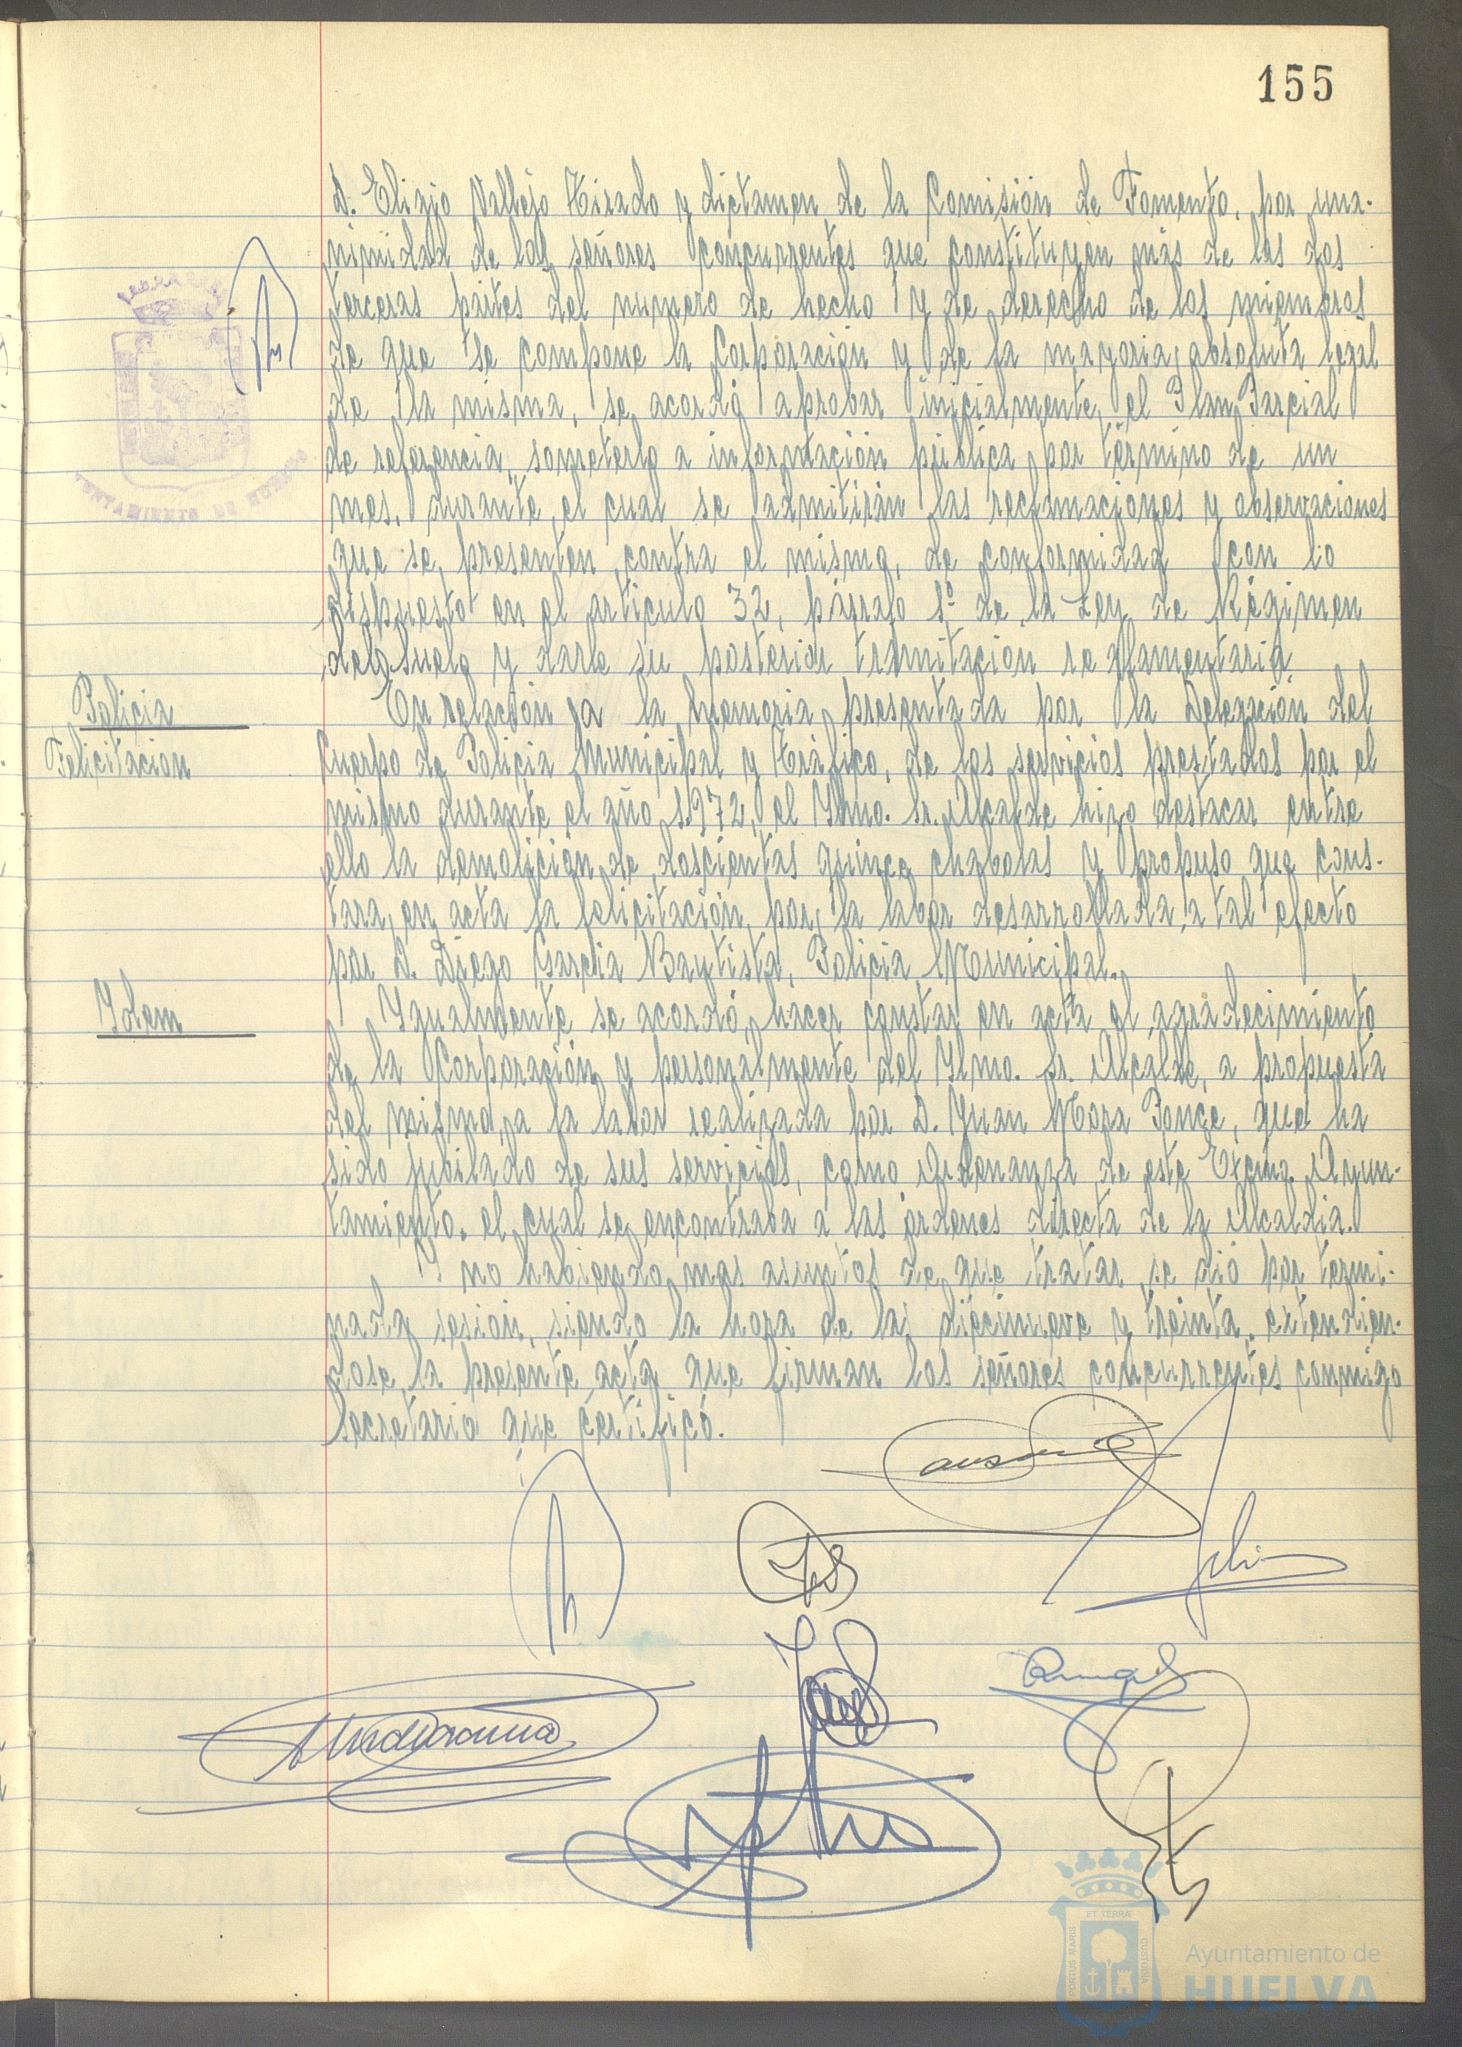 155
D. Eligio Vallejo Hirado y dictamen de la Comisión de Fomento, por una-
nimidad de los señores concurrentes que constituyen más de las dos
terceras partes del numero de hecho y de derecho de los miembros
de que se compone la Corporación y de la mayoria absoluta legal
de la misma, se acordó aprobar inicialmente el Plan Parcial
de referencia, someterlo a información pública por término de un
mes, durante el cual se admitirán las reclamaciones y observaciones
que se presenten contra el mismo, de conformidad con lo
dispuesto en el articulo 32, párrafo 1º de la Ley de Régimen
del Suelo y darle su posterior tramitación reglamentaria
Policia
Felicitacion
En relación a la memoria presentada por la Delegación del
Cuerpo de Policia Municipal y Tráfico, de los servicios prestados por el
mismo durante el año 1972, el Ylmo. Sr. Alcalde hizo destacar entre
ello la demolición de doscientas quince chabolas y propuso que cons-
tara en acta la felicitación por la labor desarrollada a tal efecto
por D. Diego Garcia Bautista, Policia Municipal.
Ydem
Ygualmente se acordó hacer constar en acta el agradecimiento
de la Corporación y personalmente del Ylmo. Sr. Alcalde, a propuesta
del mismo, a la labor realizada por D. Juan Mora Ponce, que ha
sido jubilado de sus servicios, como Ordenanza de este Excmo. Ayun-
tamiento, el cual se encontraba a las ordenes directa de la Alcaldia.
Y no habiendo mas asuntos de que tratar se dió por termi-
nada sesion, siendo la hora de las diecinueve y treinta, extendien-
dose la presente acta que firman los señores concurrentes conmigo
Secretario que certifico.
AYUNTAMIENTO DE HUELVA
PORTUS MARIS ET TERRAE CUSTODIA
Ayuntamiento de
HUELVA